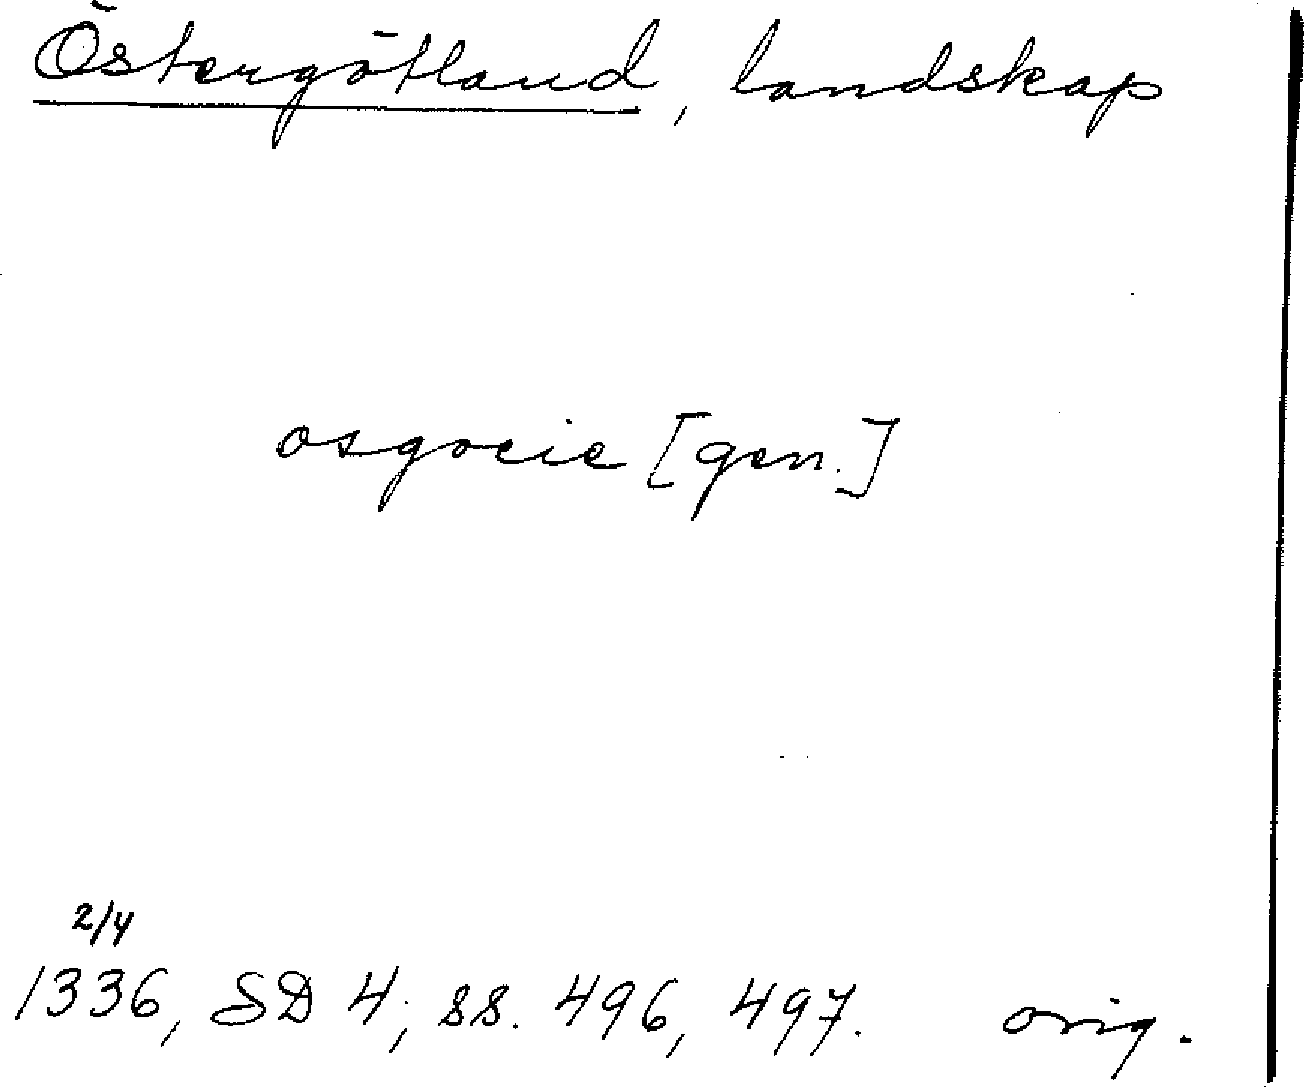 Östergötland, landskap
osgocie [gen.]
2/4
1336, SD 4, ss. 496, 497. orig.